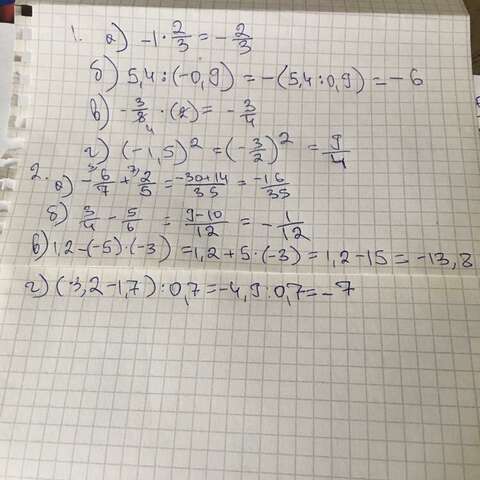 1. а) -1 · 2/3 = -2/3
б) 5,4 : (-0,9) = -(5,4 : 0,9) = -6
в) -3/8 · (2) = -3/4
4
г) (-1,5)² = (-3/2)² = 9/4
2. а) -6/7 + 2/5 = -30+14/35 = -16/35
б) 3/4 - 5/6 = 9-10/12 = -1/12
в) 1,2-(-5)·(-3) = 1,2+5·(-3) = 1,2-15 = -13,8
г) (-3,2-1,7) : 0,7 = -4,9 : 0,7 = -7